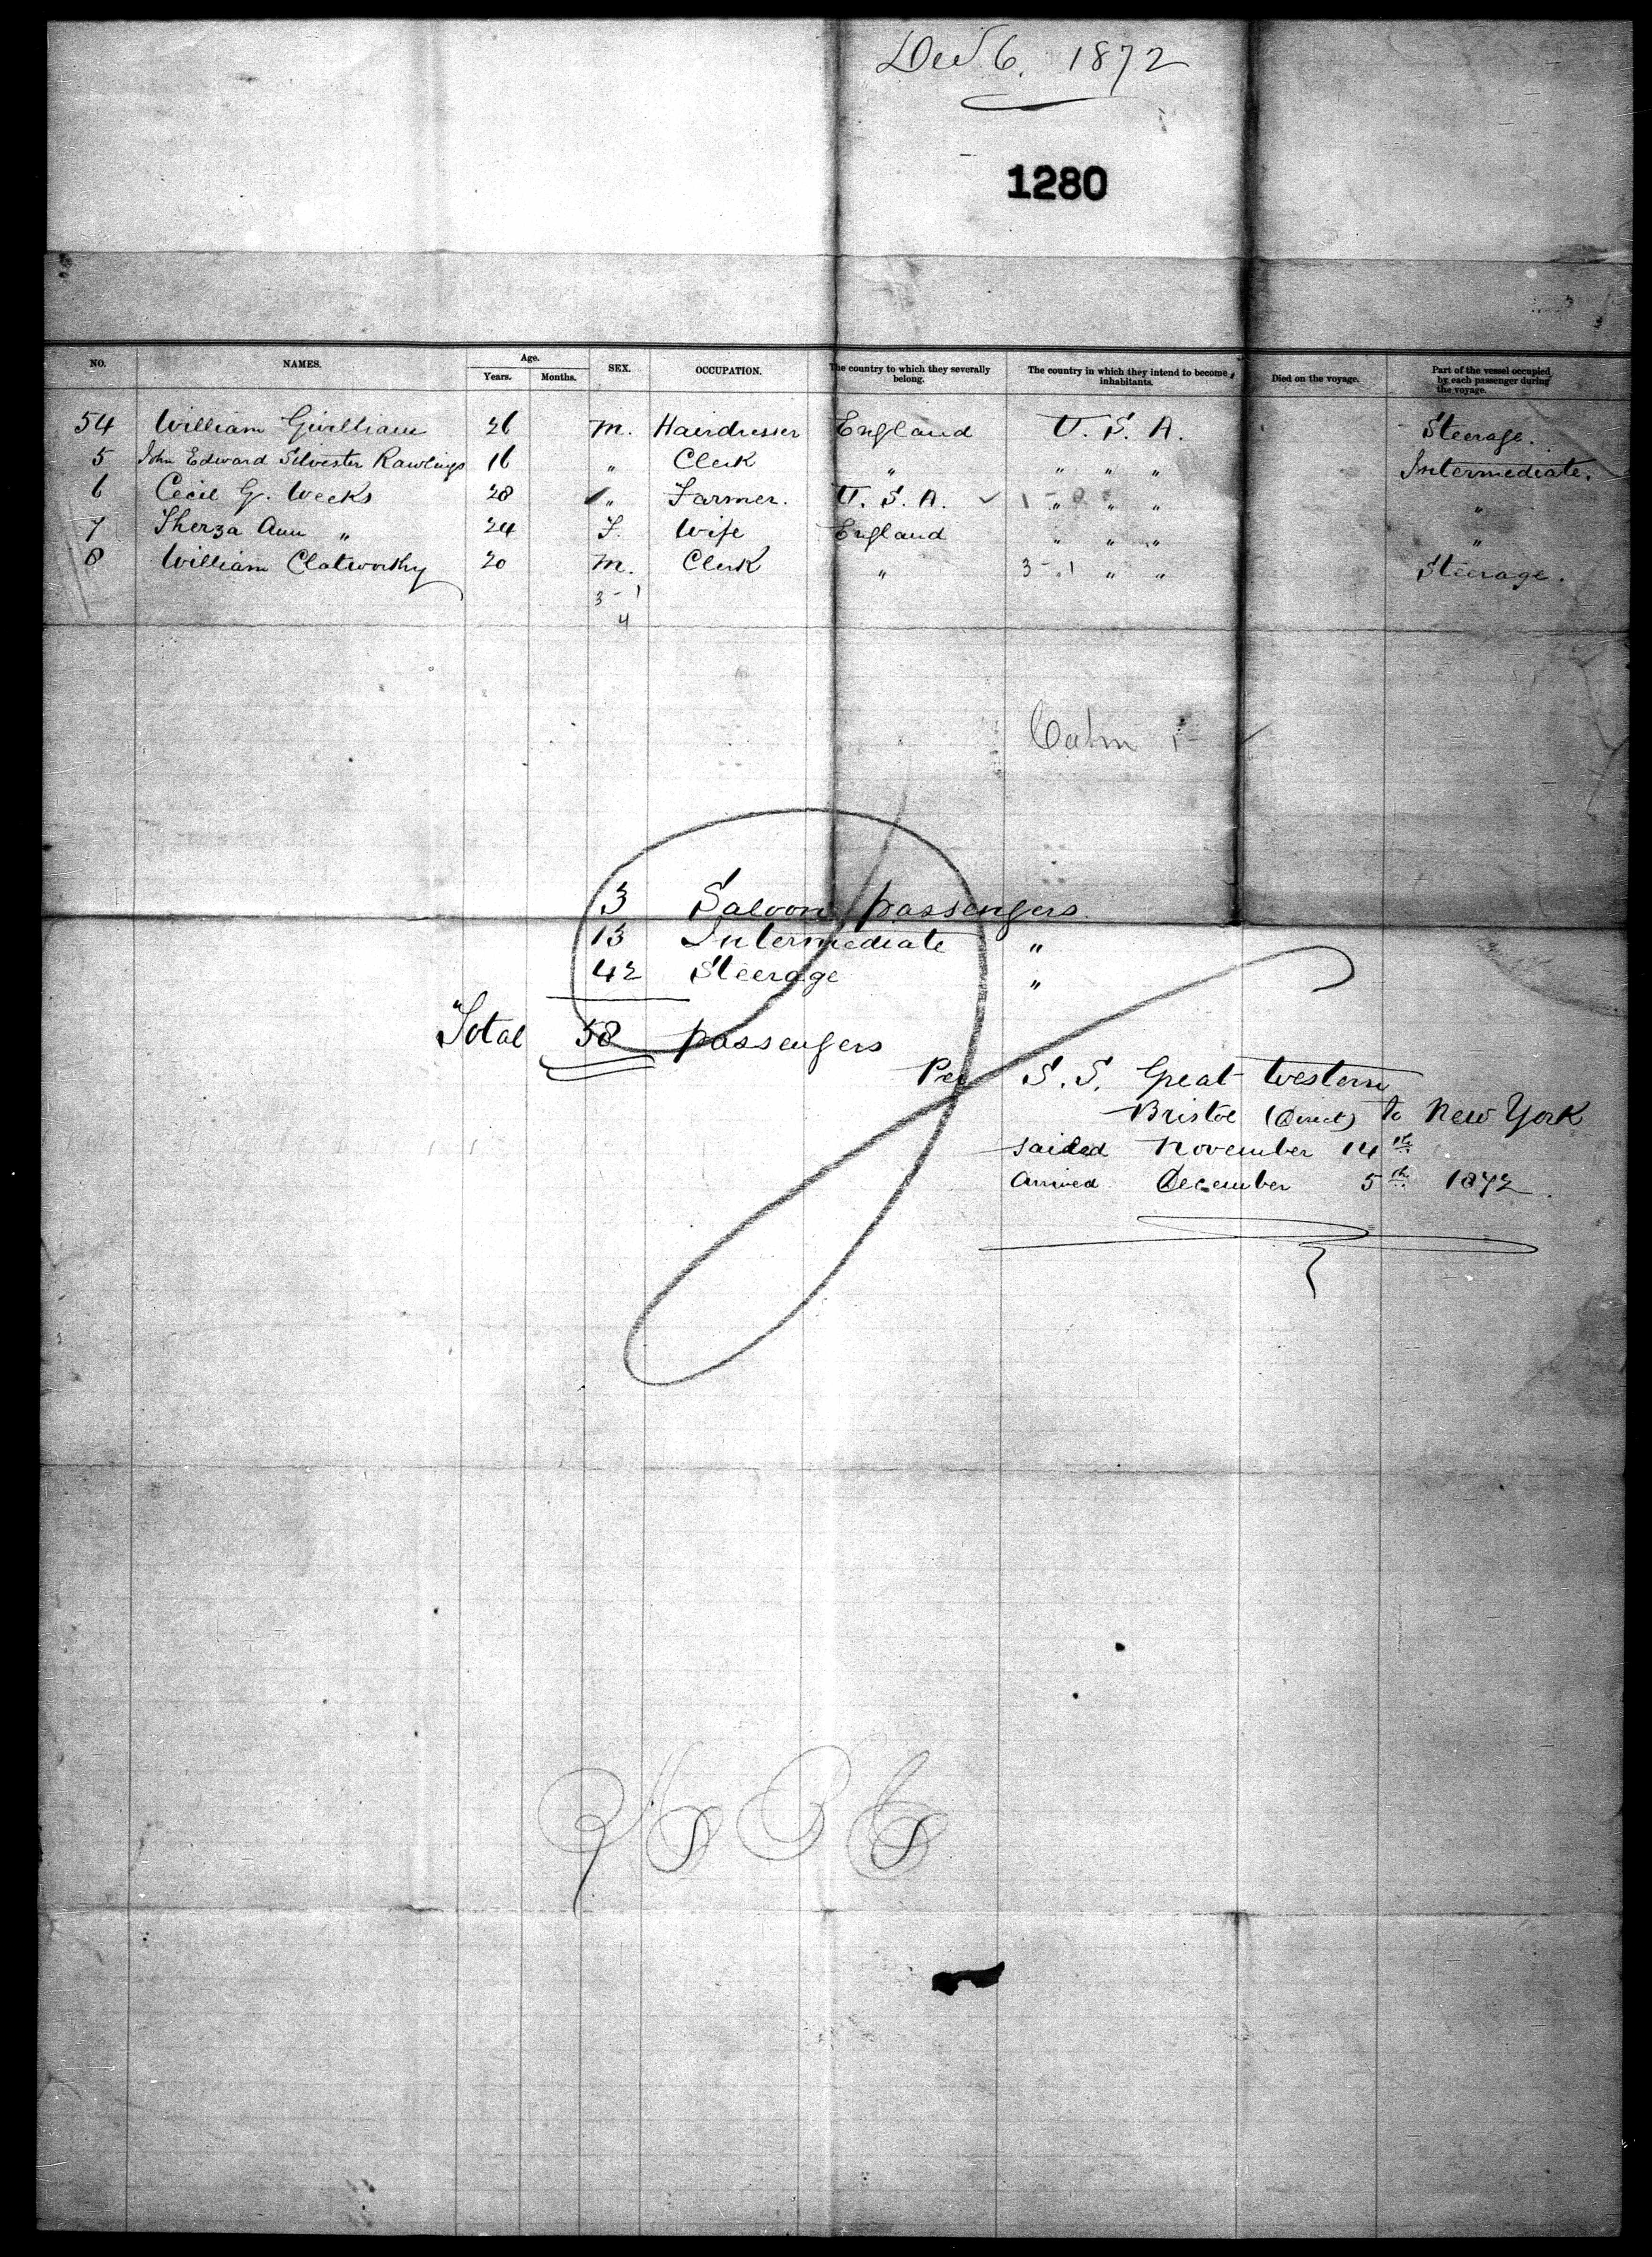 Dec 6. 1872
1280
NO. NAMES. Age. Years. Months. SEX. OCCUPATION. The country to which they severally belong. The country in which they intend to become inhabitants. Died on the voyage. Part of the vessel occupied by each passenger during the voyage.
54 William Gwilliam 26 M. Hairdresser England U. S. A. Steerage.
5 John Edward Silvester Rawlings 16 " Clerk " " " " Intermediate.
6 Cecil G. Weeks 28 " Farmer. U. S. A. " " " "
7 Therza Ann " 24 F. Wife England " " " "
8 William Clatworthy 20 M. Clerk " 3-1 " " Steerage.
3-1
4
3 Saloon passengers
13 Intermediate "
42 Steerage "
Total 58 passengers
Per S. S. Great Western
Bristol (Direct) to New York
Sailed November 14th
Arrived December 5th 1872.